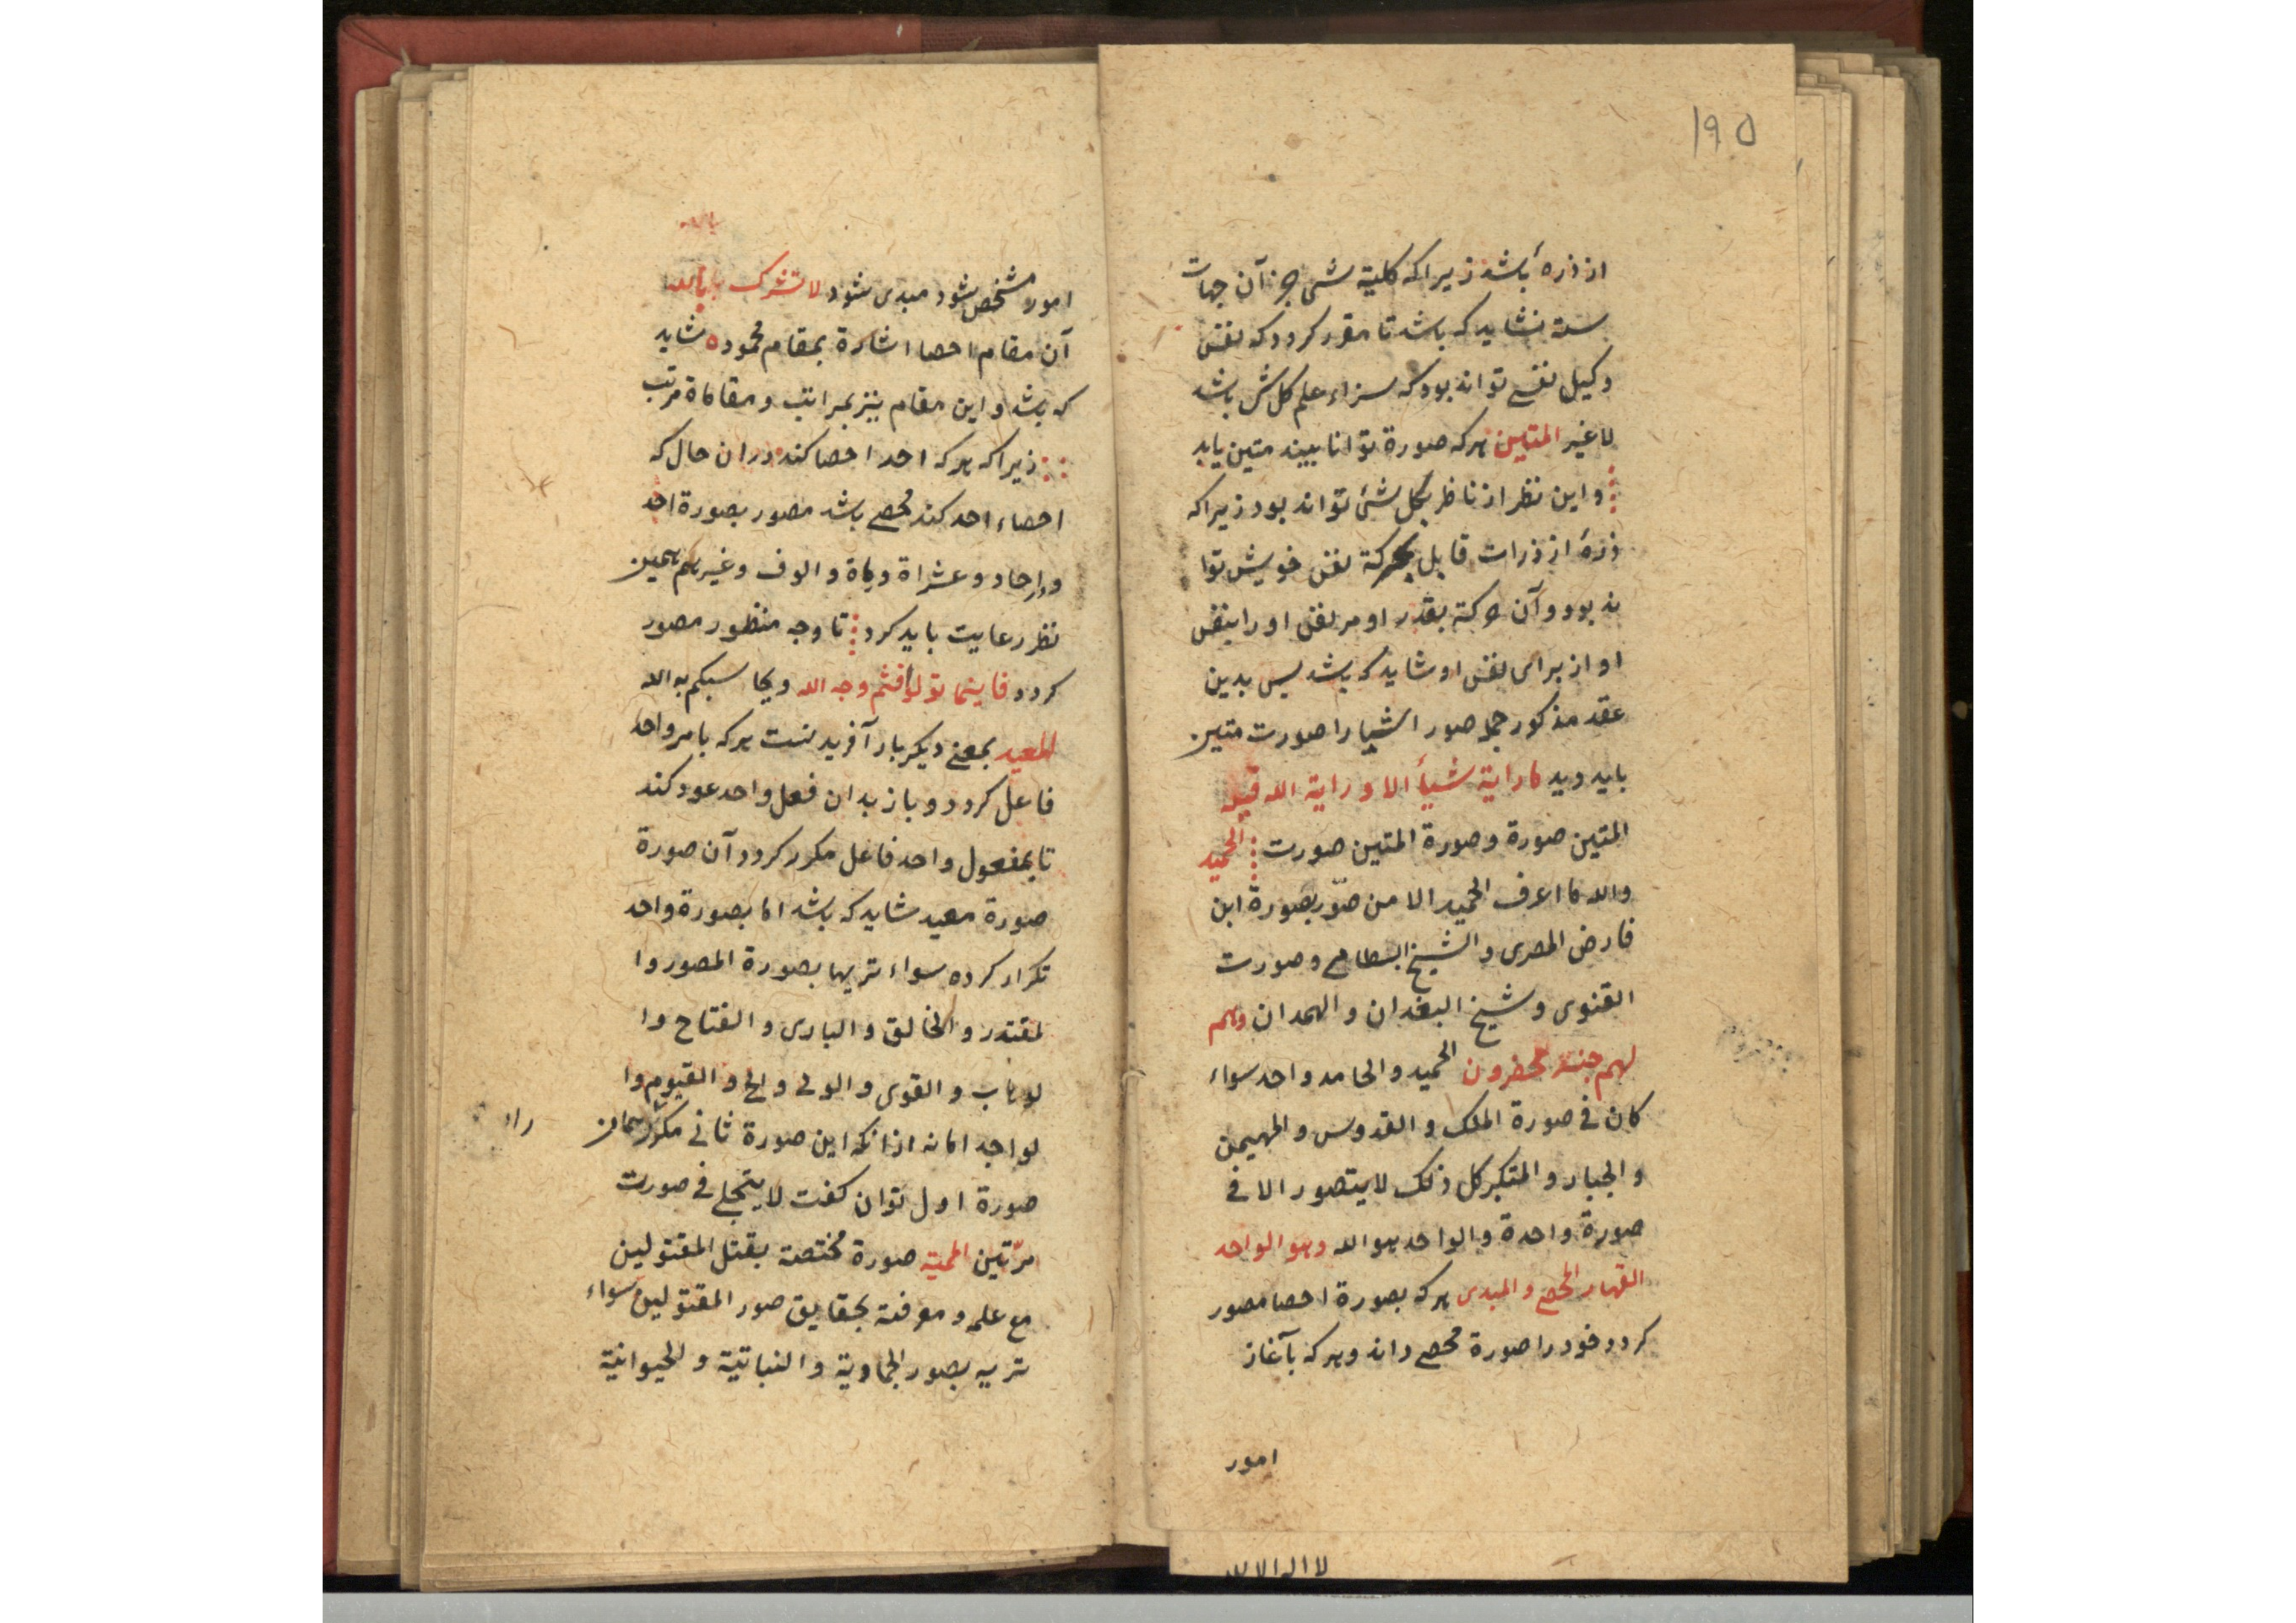 ۱۹۵
از ذرهٔ باشد زیرا که کلیة شی جز آن جهات
ستة نشاید که باشد تا مقرر کردد که نفس
وکیل نفسی تواند بود که سزاء علم کل ش باشد
لا غیر المتین هرکه صورة توانا بیند متین یابد
واین نظر از ناظر بکل شئ تواند بود زیرا که
ذرهٔ از ذرات قابل بحرکة نفس خویش توا
ند بود و آن حرکة بقدر او مر نفس او را بنفس
او از برای نفس او شاید که باشد پس بدین
عقد مذکور جمل صور اشیا را صورت متین
باید دید ما رایة شیأ الا و رایة الله قبله
المتین صورة وصورة المتین صورت الحمید
والله ما اعرف الحمید الا من صوّر بصورة ابن
فارض المصری و الشیخ البسطامی وصورت
القنوی وشیخ البغدان و الهمدان وهم
لهم جند محضرون الحمید والحامد واحد سواء
کان فی صورة الملک و القدوس و المهیمن
و الجبار و المتکبر کل ذلک لا یتصور الا فی
صورة واحدة والواحد هو الله وهو الواحد
القهار المحصی و المبدی هرکه بصورة احصا مصور
کردد خود را صورة محصی داند وهرکه بآغاز
امور
لا اله الا الله
امور مشخص شود مبدی شود لا تشرک بالله
آن مقام احصا اشارة بمقام محمود شاید
که باشد و این مقام نیز بمراتب و مقاماة مرتب
زیرا که هرکه احد احصا کند دران حال که
احصاء احد کند محصی باشد مصور بصورة احد
ودر احاد و عشراة و ماة و الوف و غیرهم همین
نظر رعایت باید کرد تا وجه منظور مصور
کردد فاینما تولوا فثم وجه الله و یحاسبکم به الله
المعید بمعنی دیکر بار آفریدنست هرکه بامر واحد
فاعل کردد و باز بدان فعل واحد عود کند
تا بمفعول واحد فاعل مکرر کردد آن صورة
صورة معید شاید که باشد اما بصورة واحد
تکرار کرده سواء تریها بصورة المصور وا
لمقتدر و الخالق و الباری و الفتاح وا
لوهاب و القوی و الولی و الحی و القیوم وا
لواجد اما نه ازانکه این صورة ثانی مکرّر همان
صورة اول توان کفت لا یتجلی فی صورت
مرّتین الممیة صورة مختصة بقتل المقتولین
مع علمه و معرفته بحقایق صور المقتولین سواء
تریه بصور الجمادیة و النباتیة و الحیوانیة